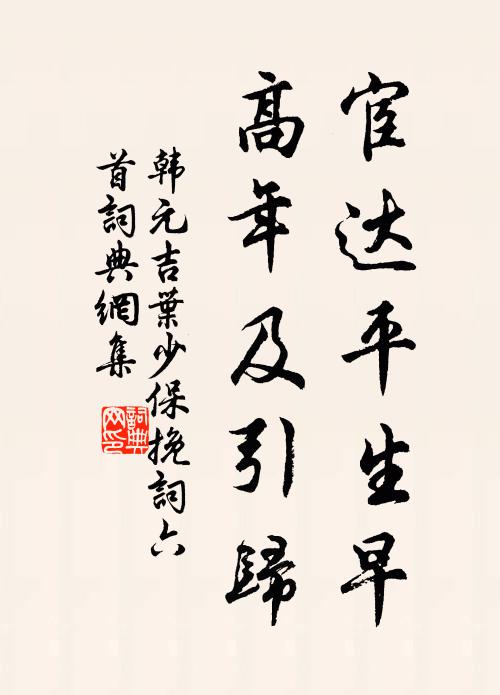 宦达平生早
高年及引歸
韩元吉葉少保挽詞六
首詞典網集
詞典
网印